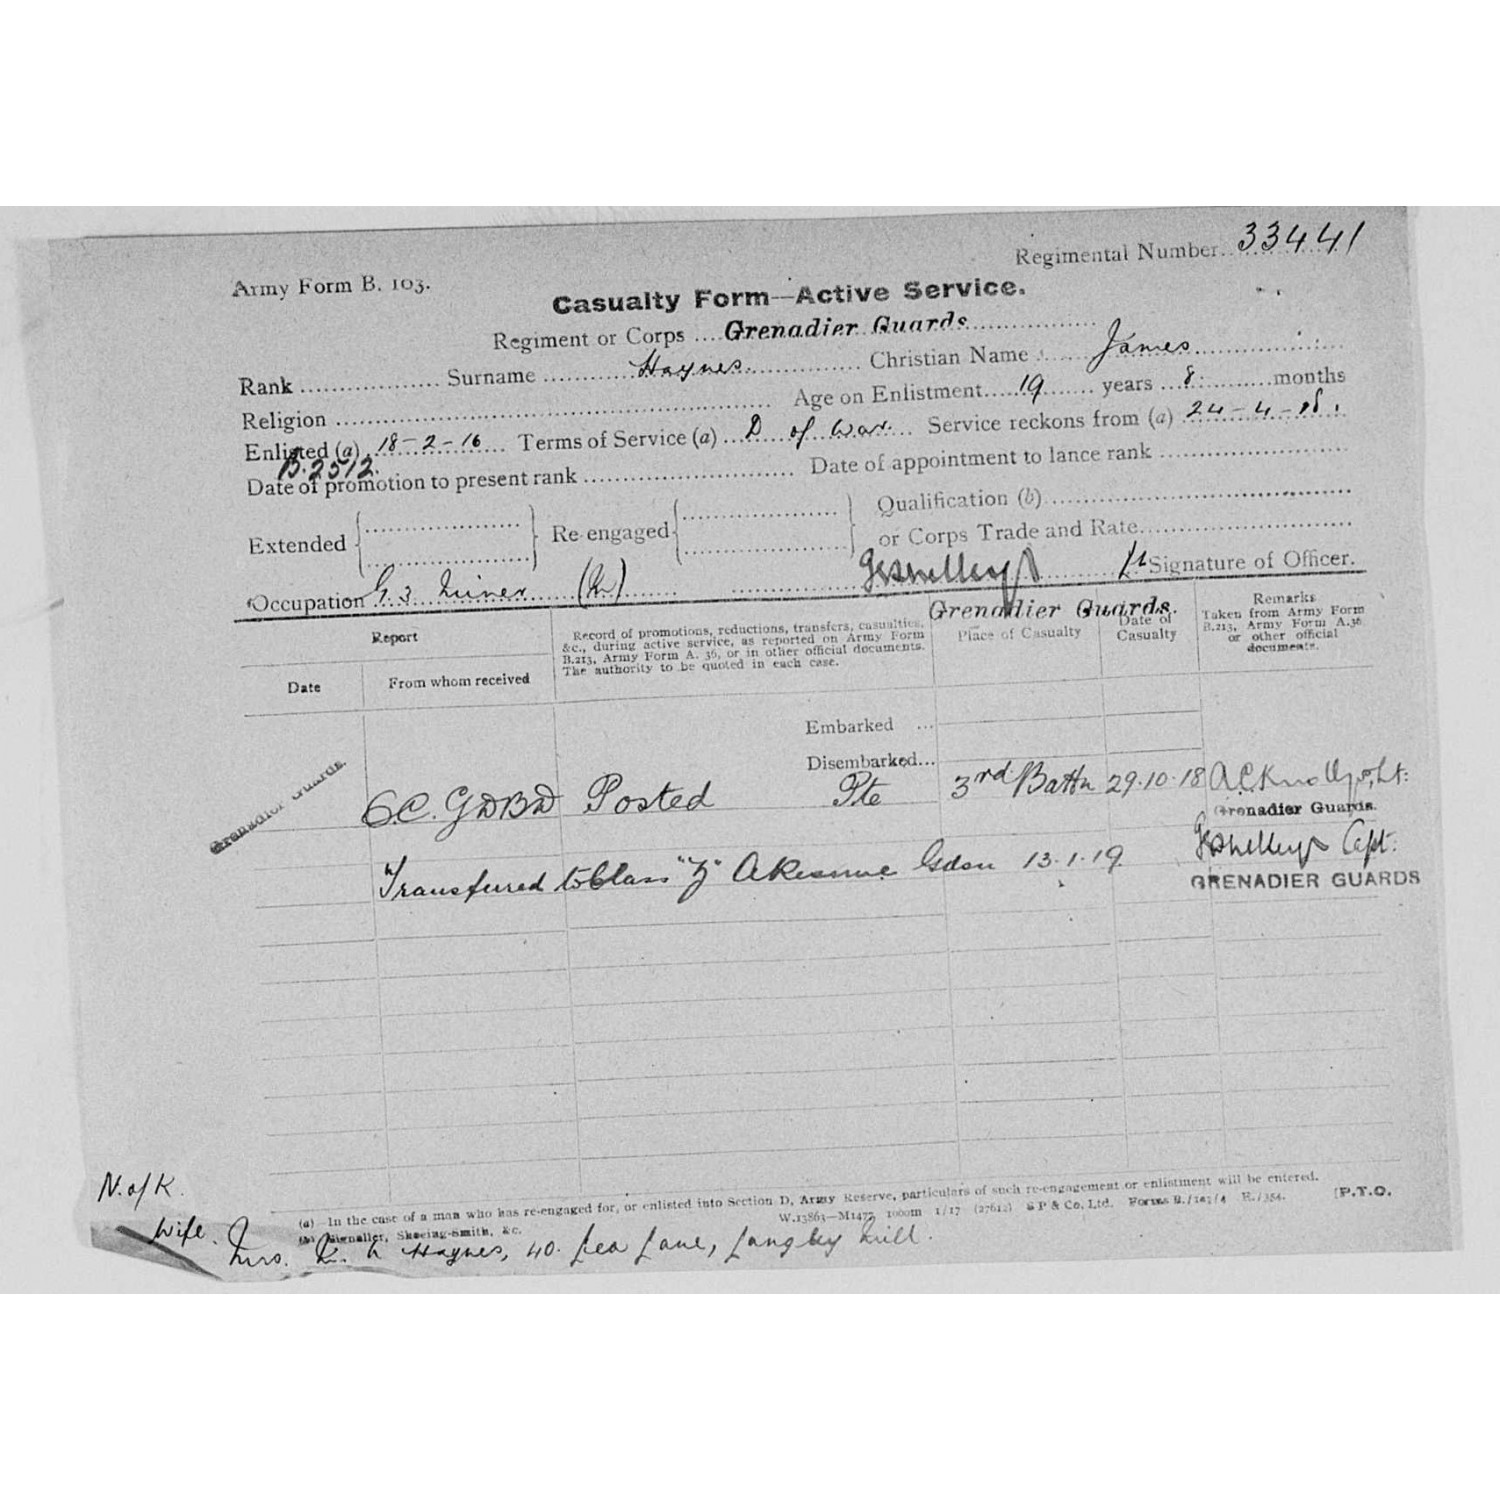 Regimental Number 33441
Army Form B. 103.
Casualty Form—Active Service.
Regiment or Corps Grenadier Guards
Rank Surname Haynes Christian Name James
Religion Age on Enlistment 19 years 8 months
Enlisted (a) 18-2-16 Terms of Service (a) D of War. Service reckons from (a) 24-4-18.
B.2512.
Date of promotion to present rank Date of appointment to lance rank
Extended Re-engaged Qualification (b)
or Corps Trade and Rate
Occupation G.3 Miner Lt Signature of Officer.
Grenadier Guards.
Report
Date From whom received
Record of promotions, reductions, transfers, casualties, &c., during active service, as reported on Army Form B.213, Army Form A. 36, or in other official documents. The authority to be quoted in each case.
Place of Casualty
Date of Casualty
Remarks
Taken from Army Form B.213, Army Form A.36 or other official documents.
Embarked ...
Disembarked...
Grenadier Guards.
O.C. GDBD Posted Pte 3rd Battn 29.10.18 Lt:
Grenadier Guards.
Transferred to Class "Z" A Reserve Gdsn 13.1.19. Capt.
GRENADIER GUARDS
N. of K.
(a) In the case of a man who has re-engaged for, or enlisted into Section D, Army Reserve, particulars of such re-engagement or enlistment will be entered.
(b) Signaller, Shoeing-Smith, &c. W.13863—M1477 1000m 1/17 (27612) S P & Co. Ltd. Forms B./103/4 E./354. [P.T.O.
Wife. Mrs. Haynes, 40. Lea Lane, Langley Mill.